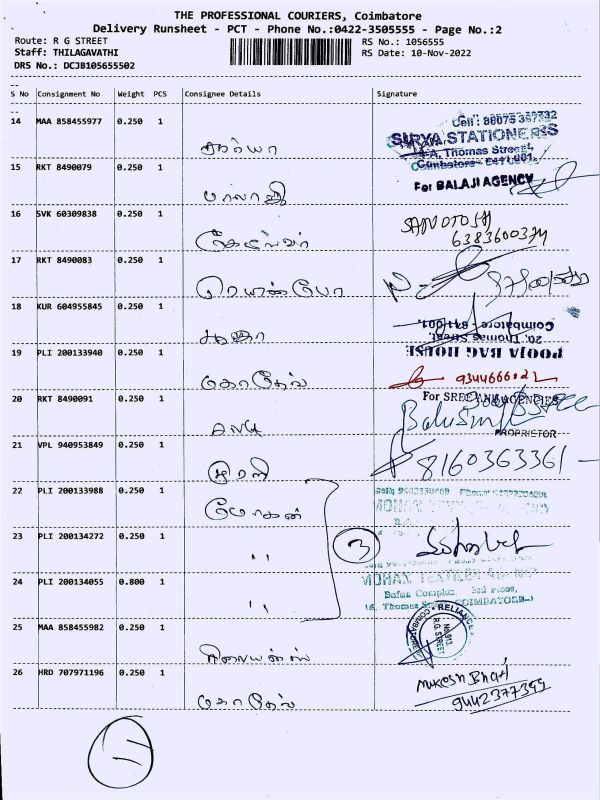 THE PROFESSIONAL COURIERS, Coimbatore
Delivery Runsheet - PCT - Phone No.:0422-3505555 - Page No.:2
Route: R G STREET
RS No.: 1056555
Staff: THILAGAVATHI
RS Date: 10-Nov-2022
DRS No.: DCJB105655502
S No Consignment No Weight PCS Consignee Details Signature
14 MAA 858455977 0.250 1
சூர்யா
Cell: 98075
SURYA STATIONERS
Thomas Street,
Coimbatore - 641 001.
15 RKT 8490079 0.250 1
பாலாஜி
For BALAJI AGENCY
16 SVK 60309838 0.250 1
SANOTOSH
6383600374
17 RKT 8490083 0.250 1
18 KUR 604955845 0.250 1
பூஜா
POOJA BAG HOUSE
20, Thomas Street,
Coimbatore - 641 001.
19 PLI 200133940 0.250 1
9344666021
20 RKT 8490091 0.250 1
For SREE AGENCIES
PROPRIETOR
21 VPL 940953849 0.250 1
முரளி
8160363361
22 PLI 200133988 0.250 1
மோகன்
23 PLI 200134272 0.250 1
,,
3
24 PLI 200134055 0.800 1
,,
MOHAN TEXTILES AGENCY
Bafna Complex, 2nd Floor,
16, Thomas Street, COIMBATORE-1
25 MAA 858455982 0.250 1
ரிலையன்ஸ்
RELIANCE
R.G. STREET
26 HRD 707971196 0.250 1
Mukesh Bhati
9442377399